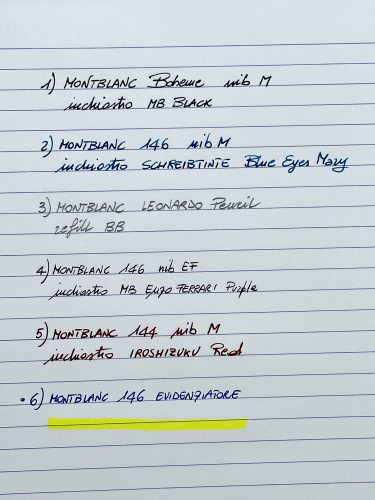 1) MONTBLANC Boheme nib M
inchiostro MB BLACK
2) MONTBLANC 146 nib M
inchiostro SCHREIBTINTE Blue Eyes Mary
3) MONTBLANC LEONARDO Pencil
refill BB
4) MONTBLANC 146 nib EF
inchiostro MB Enzo FERRARI Purple
5) MONTBLANC 144 nib M
inchiostro IROSHIZUKU Red
• 6) MONTBLANC 146 EVIDENZIATORE